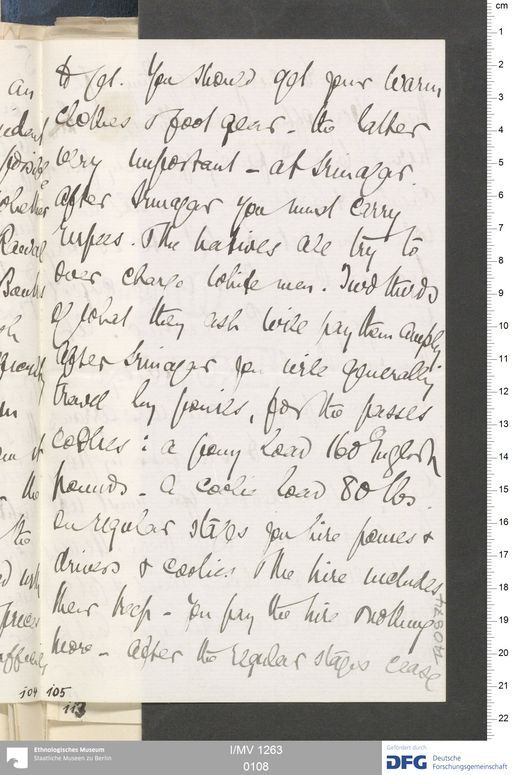 to get. You should get your warm
clothes & foot gear - the latter
very important - at Srinagar.
After Srinagar you must carry
Rupees. The natives all try to
over charge white men. Two thirds
of what they ask will pay them amply
After Srinagar you will generally
travel by ponies, for the passes
coolies: a pony load 160 English
pounds - a coolie load 80 lbs.
In regular stages you hire ponies &
drivers & coolies. The hire includes
their keep - You pay the hire & nothing
more - After the regular stages cease
an
Bank
the
to the
prices
104 105
113
cm
1
2
3
4
5
6
7
8
9
10
11
12
13
14
15
16
17
18
19
20
21
22
Ethnologisches Museum
Staatliche Museen zu Berlin
I/MV 1263
0108
Gefördert durch
DFG Deutsche
Forschungsgemeinschaft